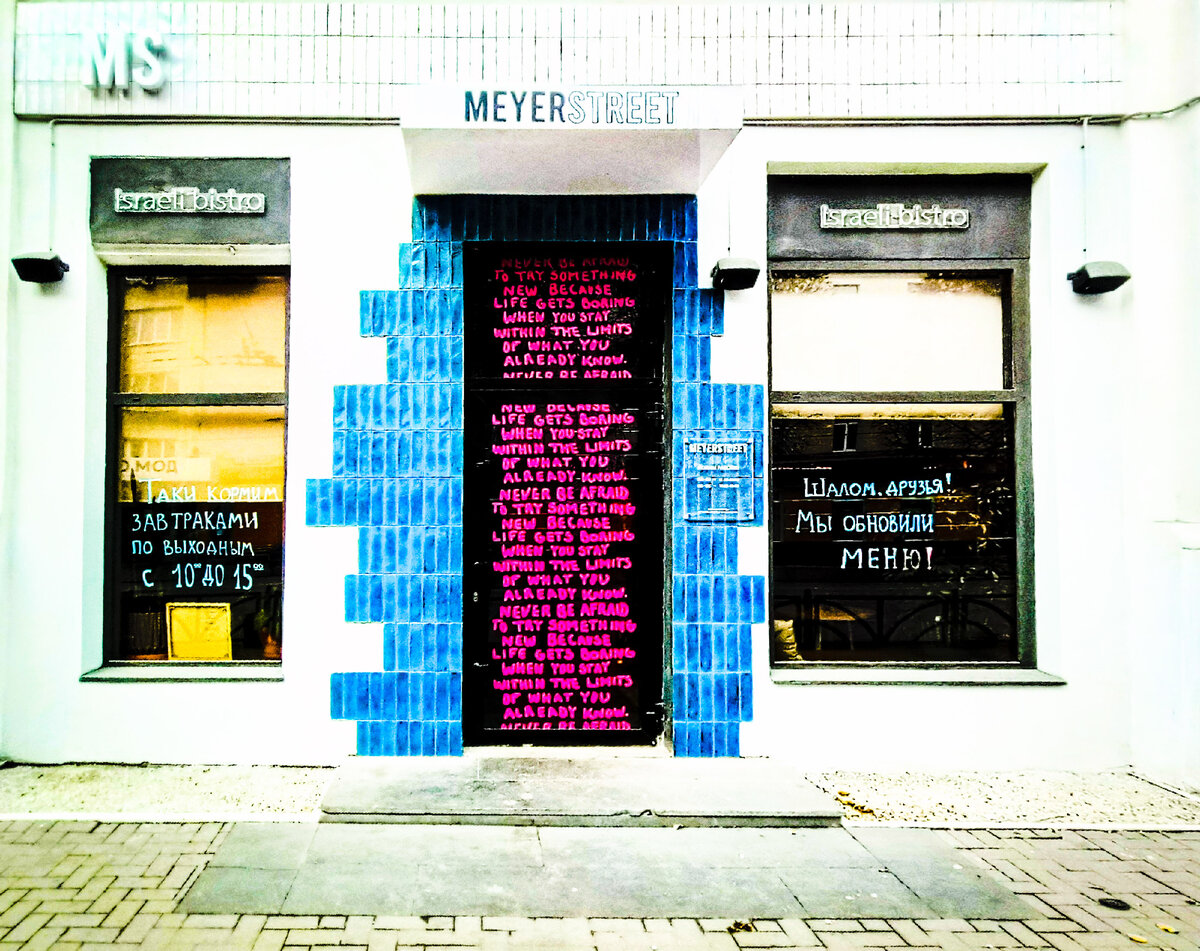 MS
MEYERSTREET
Israeli bistro
Israeli bistro
NEVER BE AFRAID
TO TRY SOMETHING
NEW BECAUSE
LIFE GETS BORING
WHEN YOU STAY
WITHIN THE LIMITS
OF WHAT YOU
ALREADY KNOW.
NEVER BE AFRAID
NEW BECAUSE
LIFE GETS BORING
WHEN YOU STAY
WITHIN THE LIMITS
OF WHAT YOU
ALREADY KNOW.
NEVER BE AFRAID
TO TRY SOMETHING
NEW BECAUSE
LIFE GETS BORING
WHEN YOU STAY
WITHIN THE LIMITS
OF WHAT YOU
ALREADY KNOW.
NEVER BE AFRAID
TO TRY SOMETHING
NEW BECAUSE
LIFE GETS BORING
WHEN YOU STAY
WITHIN THE LIMITS
OF WHAT YOU
ALREADY KNOW.
NEVER BE AFRAID
MEYERSTREET
МОД
ТАКИ КОРМИМ
ЗАВТРАКАМИ
ПО ВЫХОДНЫМ
С 10⁰⁰ ДО 15⁰⁰
ШАЛОМ, ДРУЗЬЯ!
МЫ ОБНОВИЛИ
МЕНЮ!